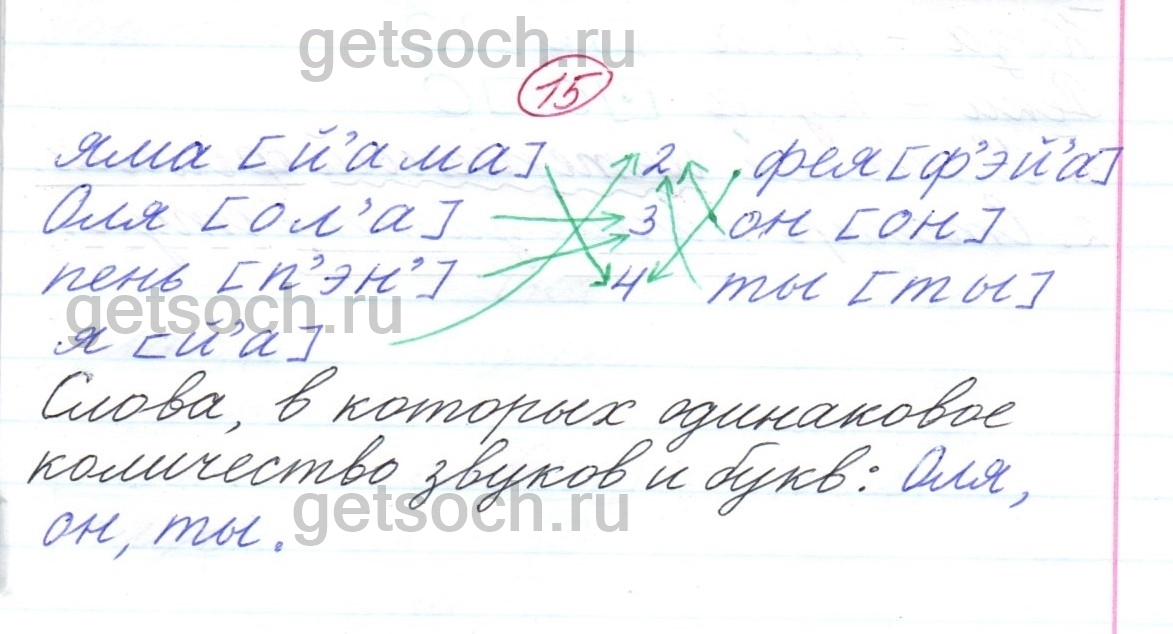 getsoch.ru
15
яма [й'ама] 2 фея [ф'эй'а]
Оля [ол'а] 3 он [он]
пень [п'эн'] 4 ты [ты]
getsoch.ru
я [й'а]
Слова, в которых одинаковое
количество звуков и букв: Оля,
getsoch.ru
он, ты.